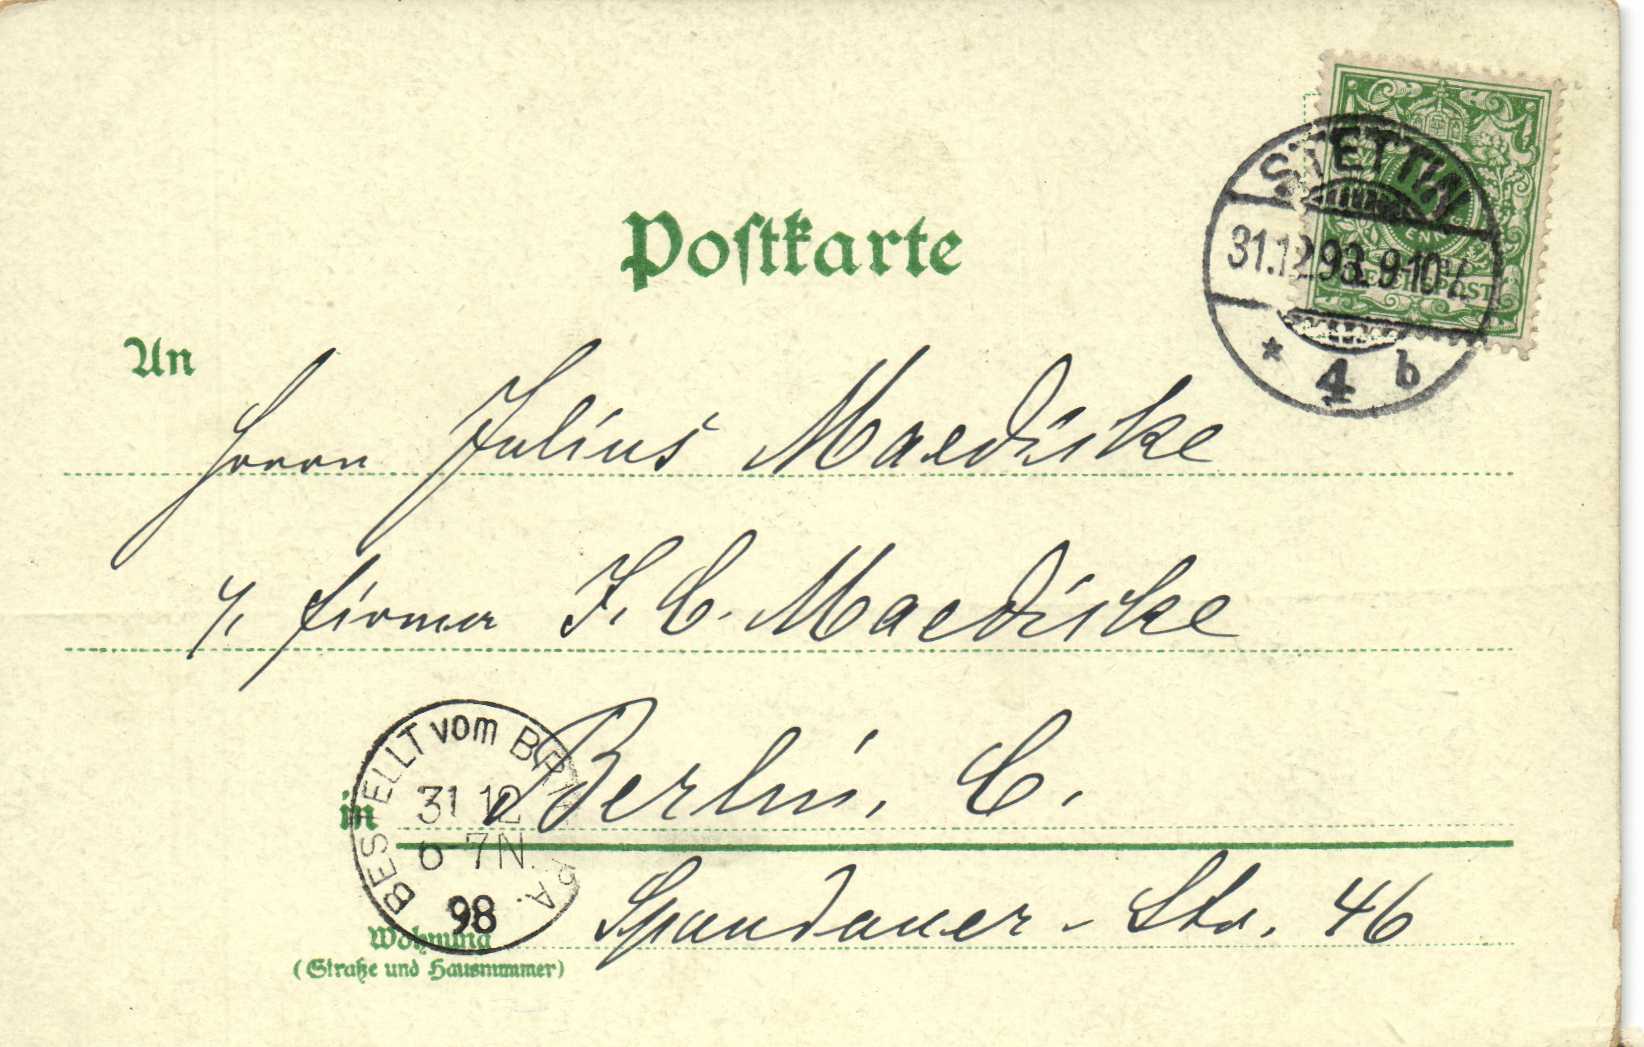 Postkarte
STETTIN
31.12.98. 9-10V.
* 4 b
An
Herrn Julius Maediske
i/ Firma J. C. Maediske
in Berlin, C.
BESTELLT vom
31 12
6-7N.
98
Spandauer-Str. 46
Wohnung
(Straße und Hausnummer)